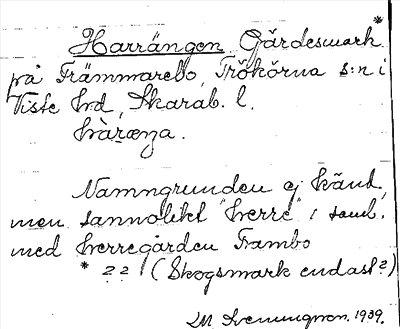 Harrängen Gärdesmark *
på Främmarebo, Trökörna s:n i
Viste hrd, Skarab. l.
hàræŋa.
Namngrunden ej känd,
men sannolikt "herre" i samb.
med herregården Frambo
* ? ? (Skogsmark endast?)
M Svenningson. 1939.